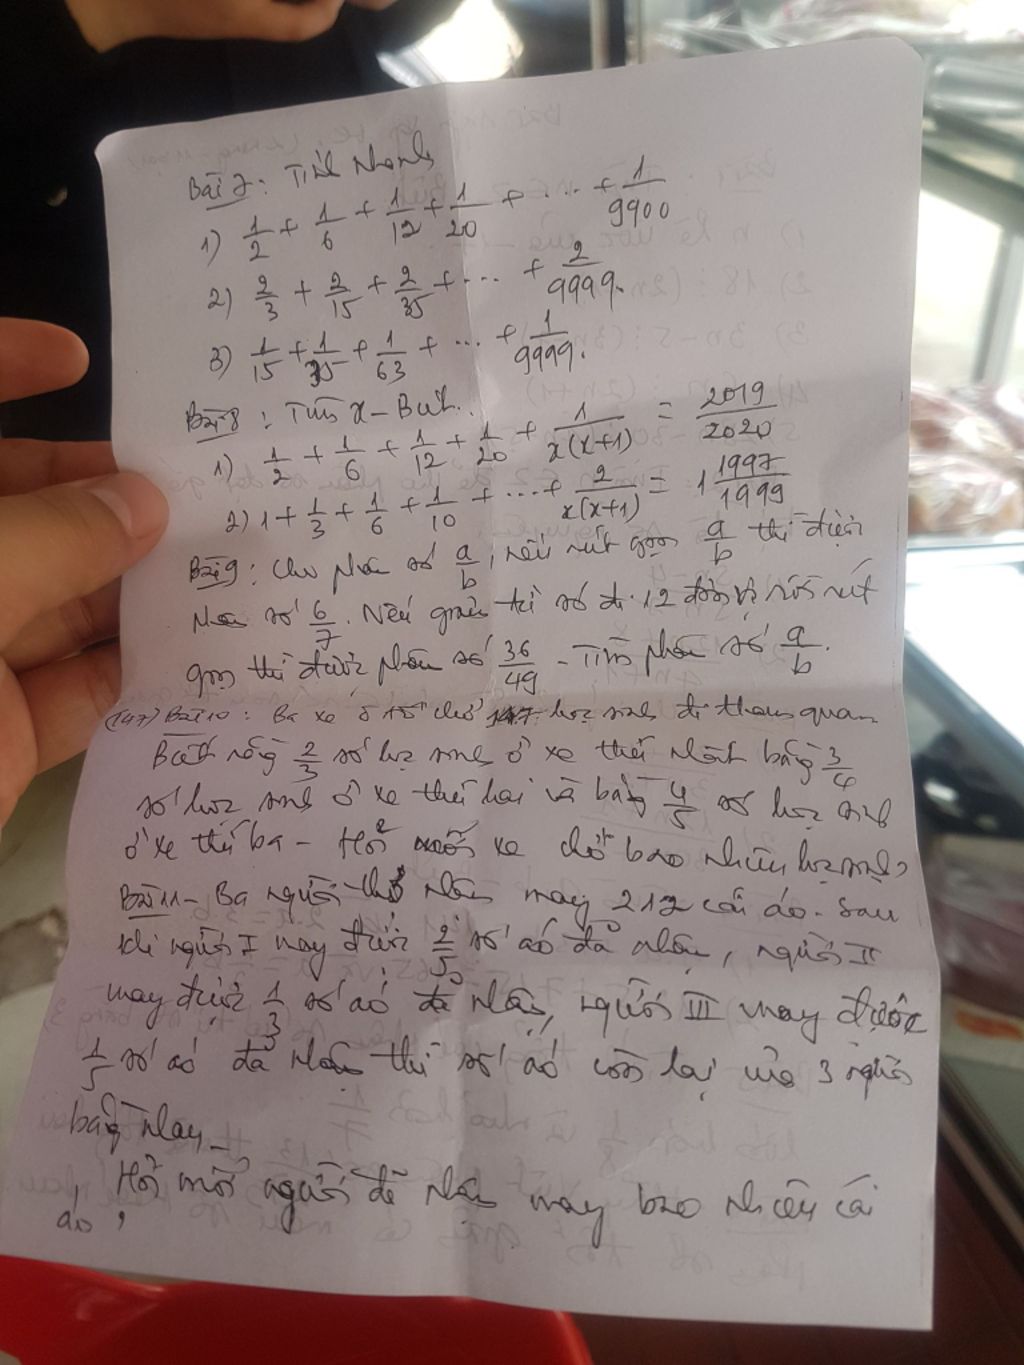 Bài 7: Tính nhanh
1) 1/2 + 1/6 + 1/12 + 1/20 + ... + 1/9900
2) 2/3 + 2/15 + 2/35 + ... + 2/9999.
3) 1/15 + 1/35 + 1/63 + ... + 1/9999.
Bài 8: Tìm x - Biết.
1) 1/2 + 1/6 + 1/12 + 1/20 + 1/x(x+1) = 2019/2020
2) 1 + 1/3 + 1/6 + 1/10 + ... + 2/x(x+1) = 1 1997/1999
Bài 9: Cho phân số a/b, nếu rút gọn a/b thì được
phân số 6/7. Nếu giảm tử số đi 12 đơn vị rồi rút
gọn thì được phân số 36/49 - Tìm phân số a/b.
(147) Bài 10: Ba xe ô tô chở 147 học sinh đi tham quan
Biết rằng 2/3 số học sinh ở xe thứ nhất bằng 3/4
số học sinh ở xe thứ hai và bằng 4/5 số học sinh
ở xe thứ ba - Hỏi mỗi xe chở bao nhiêu học sinh?
Bài 11 - Ba người thợ nhận may 212 cái áo - Sau
khi người I may được 2/5 số áo đã nhận, người II
may được 1/3 số áo đã nhận, người III may được
1/5 số áo đã nhận thì số áo còn lại của 3 người
bằng nhau -
Hỏi mỗi người đã nhận may bao nhiêu cái
áo?